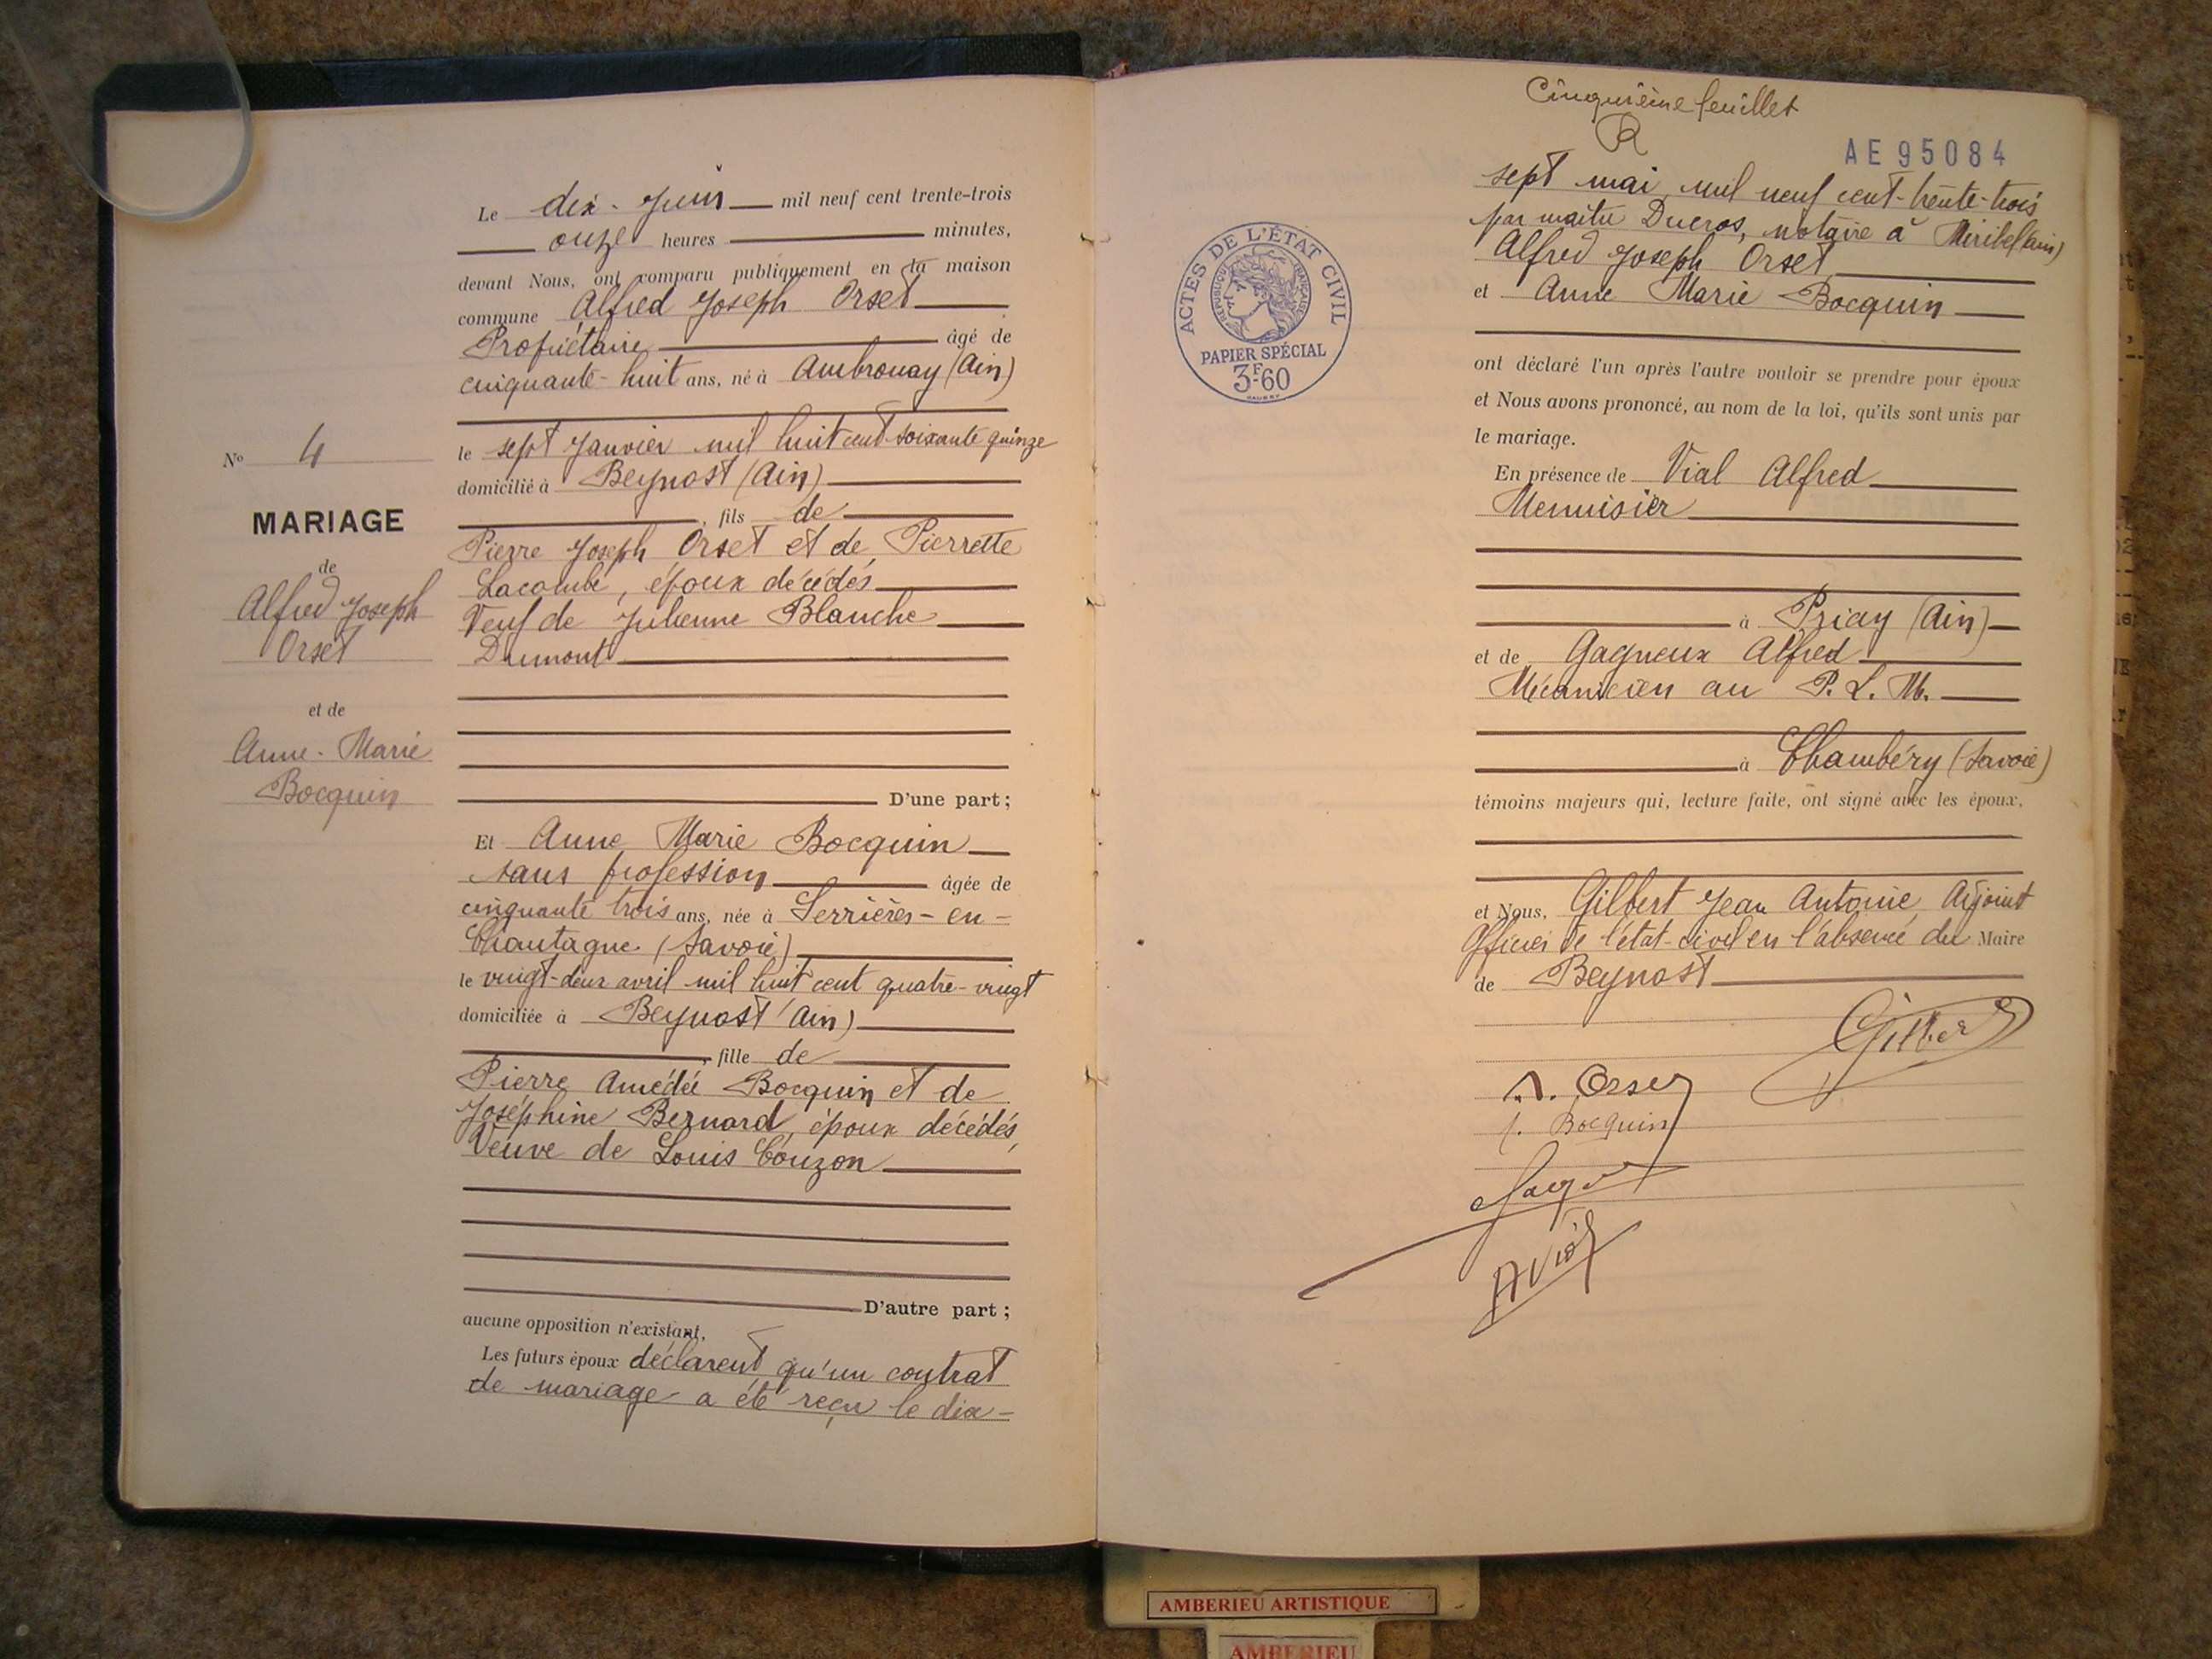 Le dix-Juin mil neuf cent trente-trois
onze heures minutes,
devant Nous, ont comparu publiquement en la maison
commune Alfred Joseph Orset
Propriétaire âgé de
cinquante-huit ans, né à Ambronay (Ain)
le sept Janvier mil huit cent soixante quinze
domicilié à Beynost (Ain)
, fils de
Pierre Joseph Orset et de Pierrette
Lacombe, époux décédés
Veuf de Julienne Blanche
Dumont
D'une part ;
Et Anne Marie Bocquin
sans profession âgée de
cinquante trois ans, née à Serrières-en-
Chautagne (Savoie)
le vingt-deux avril mil huit cent quatre-vingt
domiciliée à Beynost (Ain)
, fille de
Pierre Amédée Bocquin et de
Joséphine Bernard, époux décédés,
Veuve de Louis Couzon
D'autre part ;
aucune opposition n'existant,
Les futurs époux déclarent qu'un contrat
de mariage a été reçu le dix-
No 4
MARIAGE
de
Alfred Joseph
Orset
et de
Anne-Marie
Bocquin
Cinquième feuillet
AE 95084
ACTES DE L'ÉTAT CIVIL
RÉPUBLIQUE FRANÇAISE
PAPIER SPÉCIAL
3F-60
sept mai mil neuf cent-trente-trois
par maître Ducros, notaire à Miribel (Ain)
Alfred Joseph Orset
et Anne Marie Bocquin
ont déclaré l'un après l'autre vouloir se prendre pour époux
et Nous avons prononcé, au nom de la loi, qu'ils sont unis par
le mariage.
En présence de Vial Alfred
Menuisier
à Priay (Ain)
et de Gagneux Alfred
Mécanicien au P. L. M.
à Chambéry (Savoie)
témoins majeurs qui, lecture faite, ont signé avec les époux,
et Nous, Gilbert Jean Antoine, Adjoint
Officier de l'état-civil en l'absence du Maire
de Beynost
Gilbert
A. Orset
Bocquin
A Vial
AMBERIEU ARTISTIQUE
AMBERIEU